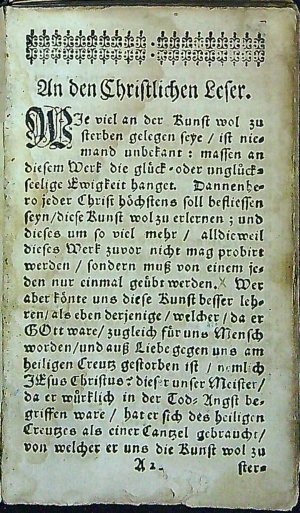 An den Christlichen Leser.
WJe viel an der Kunst wol zu
sterben gelegen seye / ist nie-
mand unbekant: massen an
diesem Werk die glück- oder unglück-
seelige Ewigkeit hanget. Dannenhe-
ro jeder Christ höchstens soll beflissen
seyn/diese Kunst wol zu erlernen; und
dieses um so viel mehr / alldieweil
dieses Werk zuvor nicht mag probirt
werden / sondern muß von einem je-
den nur einmal geübt werden. Wer
aber könte uns diese Kunst besser leh-
ren/als eben derjenige/welcher/da er
GOtt ware/zugleich für uns Mensch
worden/und auß Liebe gegen uns am
heiligen Creutz gestorben ist / nemlich
JEsus Christus: dieser unser Meister/
da er würklich in der Tod-Angst be-
griffen ware / hat er sich des heiligen
Creutzes als einer Cantzel gebraucht/
von welcher er uns die Kunst wol zu
A 2. ster-